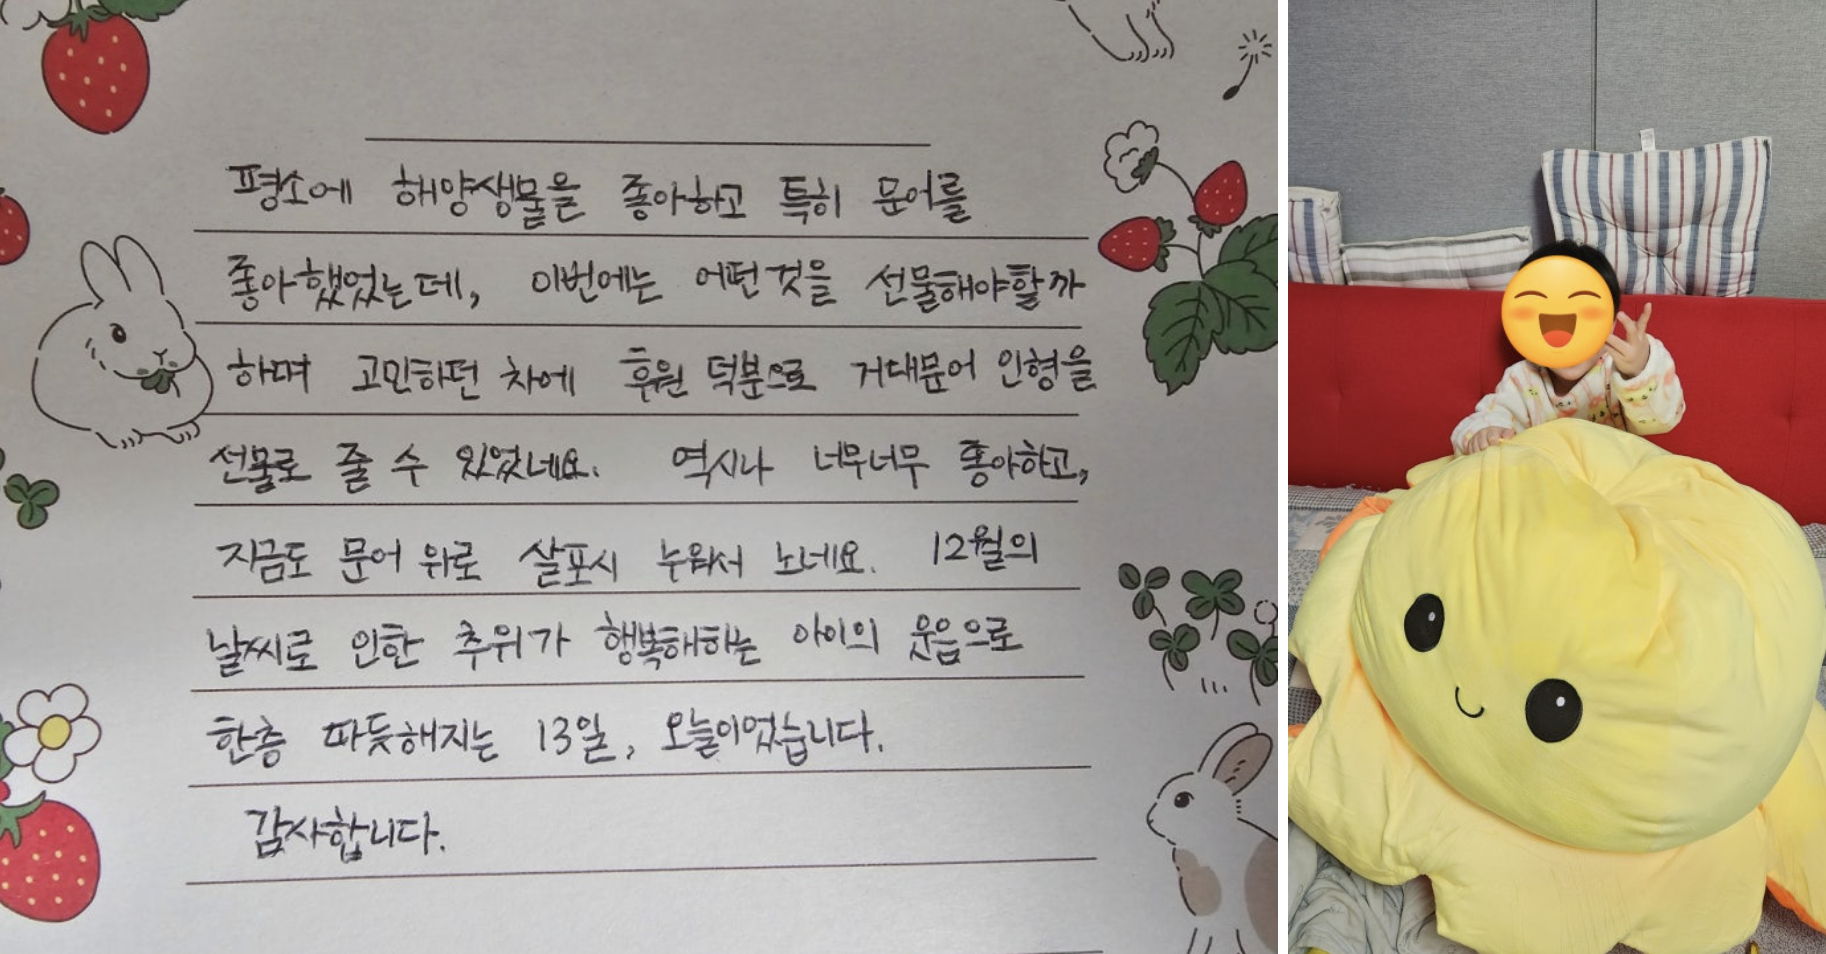 평소에 해양생물을 좋아하고 특히 문어를
좋아했었는데, 이번에는 어떤것을 선물해야할까
하며 고민하던 차에 후원 덕분으로 거대문어 인형을
선물로 줄 수 있었네요. 역시나 너무너무 좋아하고,
지금도 문어 위로 살포시 누워서 노네요. 12월의
날씨로 인한 추위가 행복해하는 아이의 웃음으로
한층 따듯해지는 13일, 오늘이었습니다.
감사합니다.